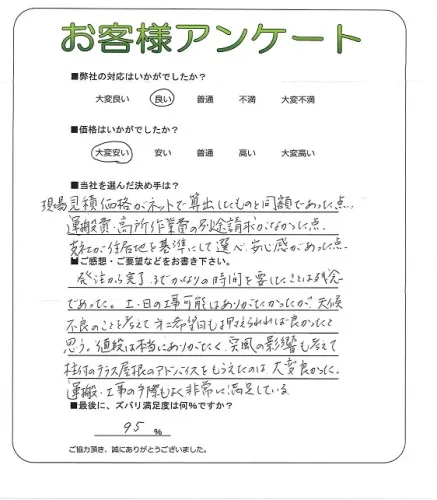 お客様アンケート
■弊社の対応はいかがでしたか?
大変良い 良い 普通 不満 大変不満
■価格はいかがでしたか?
大変安い 安い 普通 高い 大変高い
■当社を選んだ決め手は?
現場見積価格がネットで算出したものと同額であった点、
運搬費・高所作業費の別途請求がなかった点、
支社が住居地を基準にして選べ、安心感があった点。
■ご感想・ご要望などをお書き下さい。
発注から完了までかなりの時間を要したことは残念
であった。土・日の工事可能はありがたかったが、天候
不良のことを考えて第二希望日も押えられれば良かったと
思う。値段は本当にありがたく、突風の影響も考えて
柱付のテラス屋根のアドバイスをもらえたのは、大変良かった。
運搬・工事の手際もよく非常に満足している
■最後に、ズバリ満足度は何%ですか?
95 %
ご協力頂き、誠にありがとうございました。